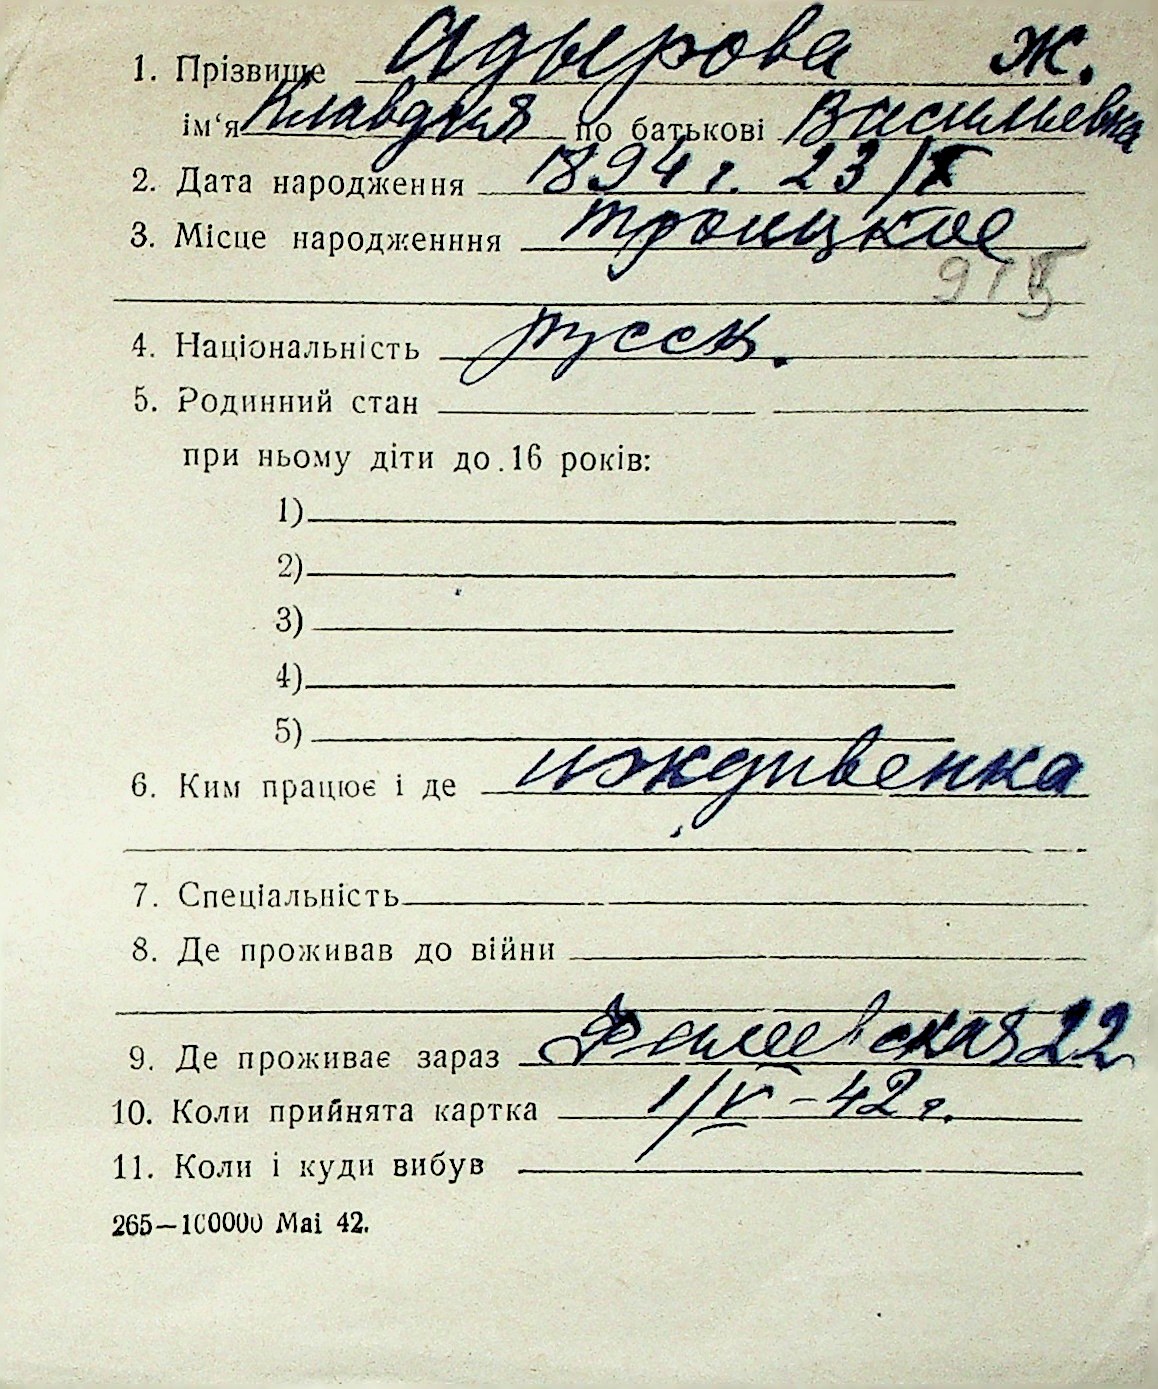 1. Прізвище Адырова Ж.
ім‘я Клавдия по батькові Васильевна
2. Дата народження 1894 г. 23/X
3. Місце народженння Троицкое
4. Національність русск.
5. Родинний стан
при ньому діти до 16 років:
1)
2)
3)
4)
5)
6. Ким працює і де иждивенка
7. Спеціальність
8. Де проживав до війни
9. Де проживає зараз 22
10. Коли прийнята картка 1/V-42 г.
11. Коли і куди вибув
265—100000 Mai 42.